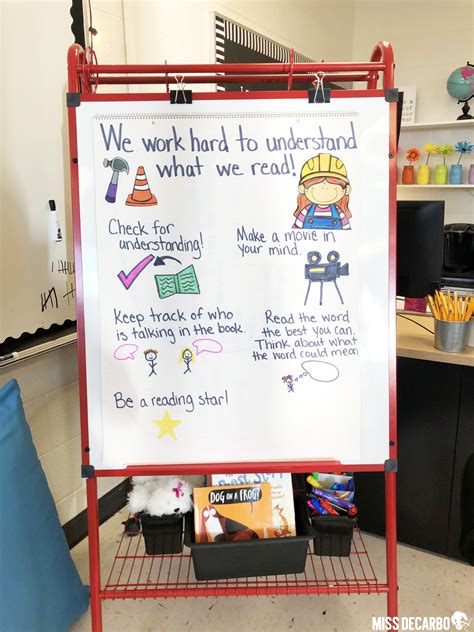 We work hard to understand
what we read!
Check for
understanding!
Make a movie in
your mind.
Keep track of who
is talking in the book.
Read the word
the best you can.
Think about what
the word could mean
Be a reading star!
DOG ON A FROG?
MISS DECARBO